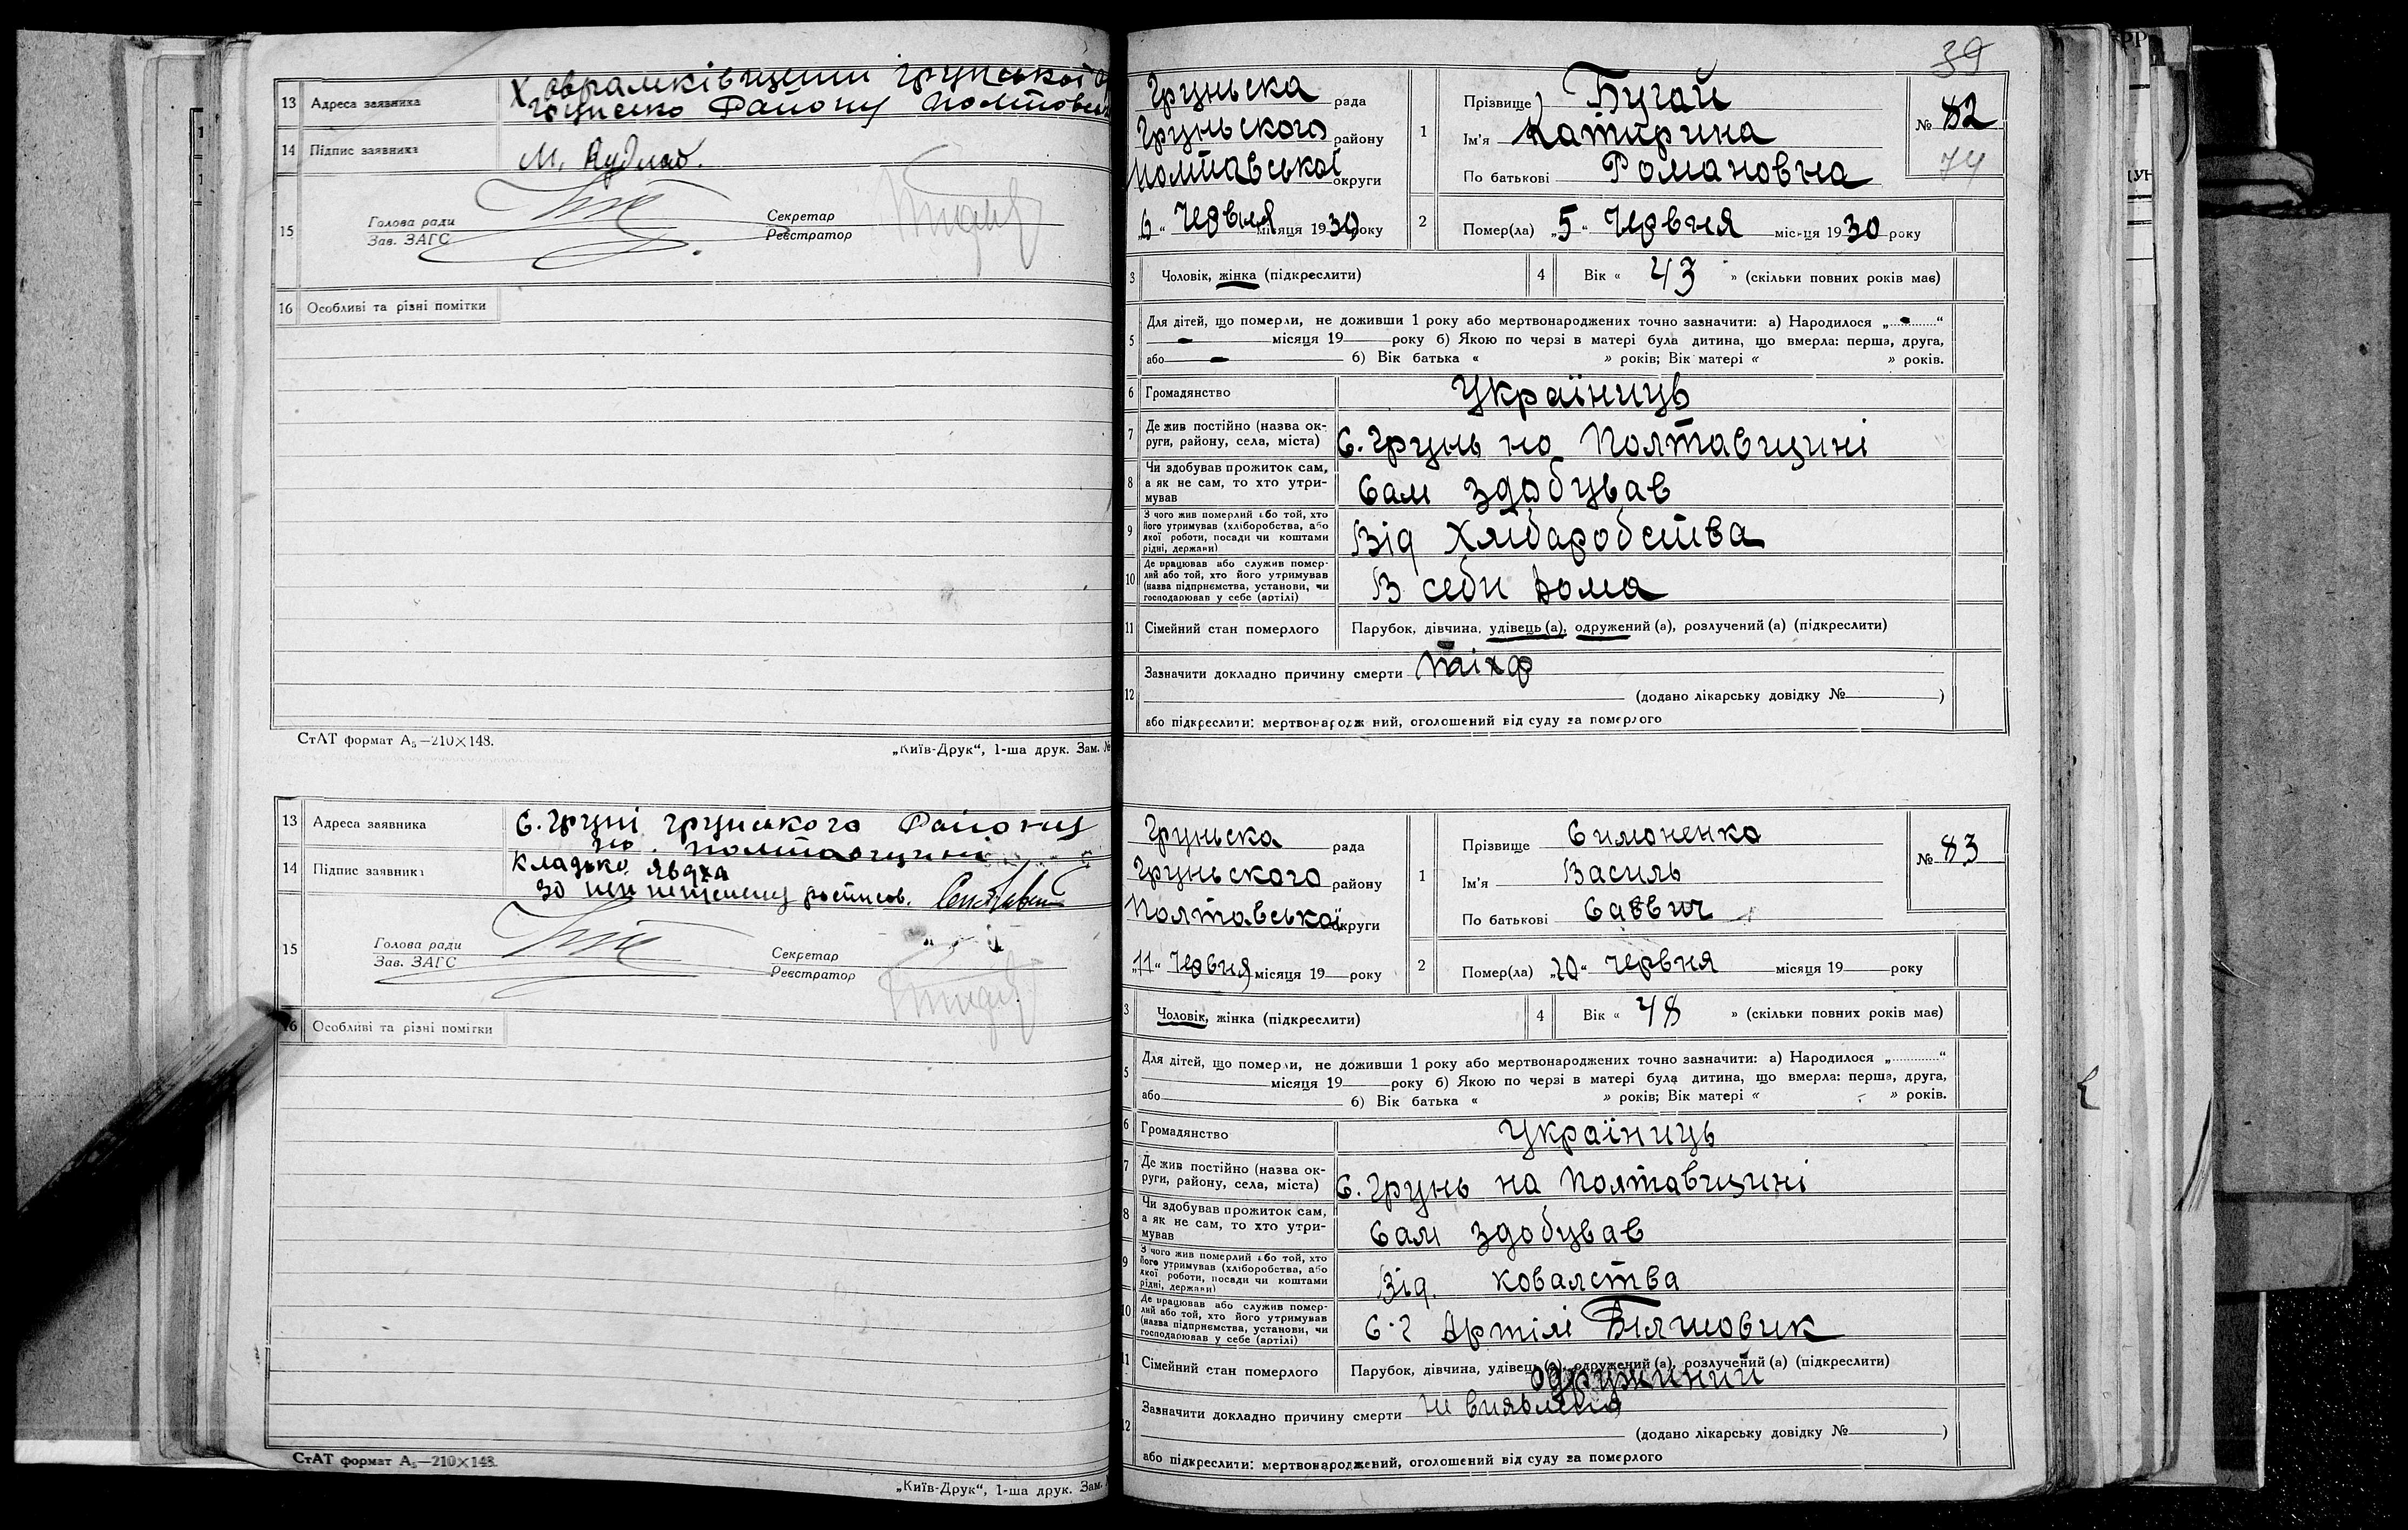 13 Адреса заявника
14 Підпис заявника
15 Голова ради
Зав. ЗАГС
Секретар
Реєстратор
16 Особливі та різні помітки
СтАТ формат А₅—210×148.
„Київ-Друк“, 1-ша друк. Зам. №
13 Адреса заявника С. Груні Грунського Району
на Полтавщині
14 Підпис заявника Кладько Явдха
15 Голова ради
Зав. ЗАГС
Секретар
Реєстратор
16 Особливі та різні помітки
СтАТ формат А₅—210×148.
„Київ-Друк“, 1-ша друк. Зам.
39
Груньска рада
Груньского району
Полтавської округи
„6“ Червня місяця 1930 року
1 Прізвище Бугай
Ім'я Катирина
По батькові Романовна
№ 82
74
2 Помер(ла) „5“ Червня місяця 1930 року
3 Чоловік, жінка (підкреслити)
4 Вік « 43 » (скільки повних років має)
5 Для дітей, що померли, не доживши 1 року або мертвонароджених точно зазначити: а) Народилося „ “
місяця 19 року б) Якою по черзі в матері була дитина, що вмерла: перша, друга,
або б) Вік батька « » років; Вік матері « » років.
6 Громадянство Україниць
7 Де жив постійно (назва округи, району, села, міста) С. Грунь на Полтавщині
8 Чи здобував прожиток сам, а як не сам, то хто утримував Сам здобував
9 З чого жив померлий або той, хто його утримував (хліборобства, або якої роботи, посади чи коштами рідні, держави) Від Хлібаробства
10 Де працював або служив померлий або той, хто його утримував (назва підприємства, установи, чи господарював у себе (артілі) В себи дома
11 Сімейний стан померлого Парубок, дівчина, удівець (а), одружений (а), розлучений (а) (підкреслити)
12 Зазначити докладно причину смерти тіхф
(додано лікарську довідку № )
або підкреслити: мертвонароджений, оголошений від суду за померлого
Груньска рада
Груньского району
Полтавської округи
„11“ Червня місяця 19 року
1 Прізвище Симоненко
Ім'я Василь
По батькові Саввич
№ 83
2 Помер(ла) „10“ червня місяця 19 року
3 Чоловік, жінка (підкреслити)
4 Вік « 48 » (скільки повних років має)
5 Для дітей, що померли, не доживши 1 року або мертвонароджених точно зазначити: а) Народилося „ “
місяця 19 року б) Якою по черзі в матері була дитина, що вмерла: перша, друга,
або б) Вік батька « » років; Вік матері « » років.
6 Громадянство Україниць
7 Де жив постійно (назва округи, району, села, міста) С. Грунь на Полтавщині
8 Чи здобував прожиток сам, а як не сам, то хто утримував Сам здобував
9 З чого жив померлий або той, хто його утримував (хліборобства, або якої роботи, посади чи коштами рідні, держави) Від. ковалства
10 Де працював або служив померлий або той, хто його утримував (назва підприємства, установи, чи господарював у себе (артілі) С-г Артілі Білшовик
11 Сімейний стан померлого Парубок, дівчина, удівець (а), одружений (а), розлучений (а) (підкреслити)
одружиний
12 Зазначити докладно причину смерти ни виявлена
(додано лікарську довідку № )
або підкреслити: мертвонароджений, оголошений від суду за померлого